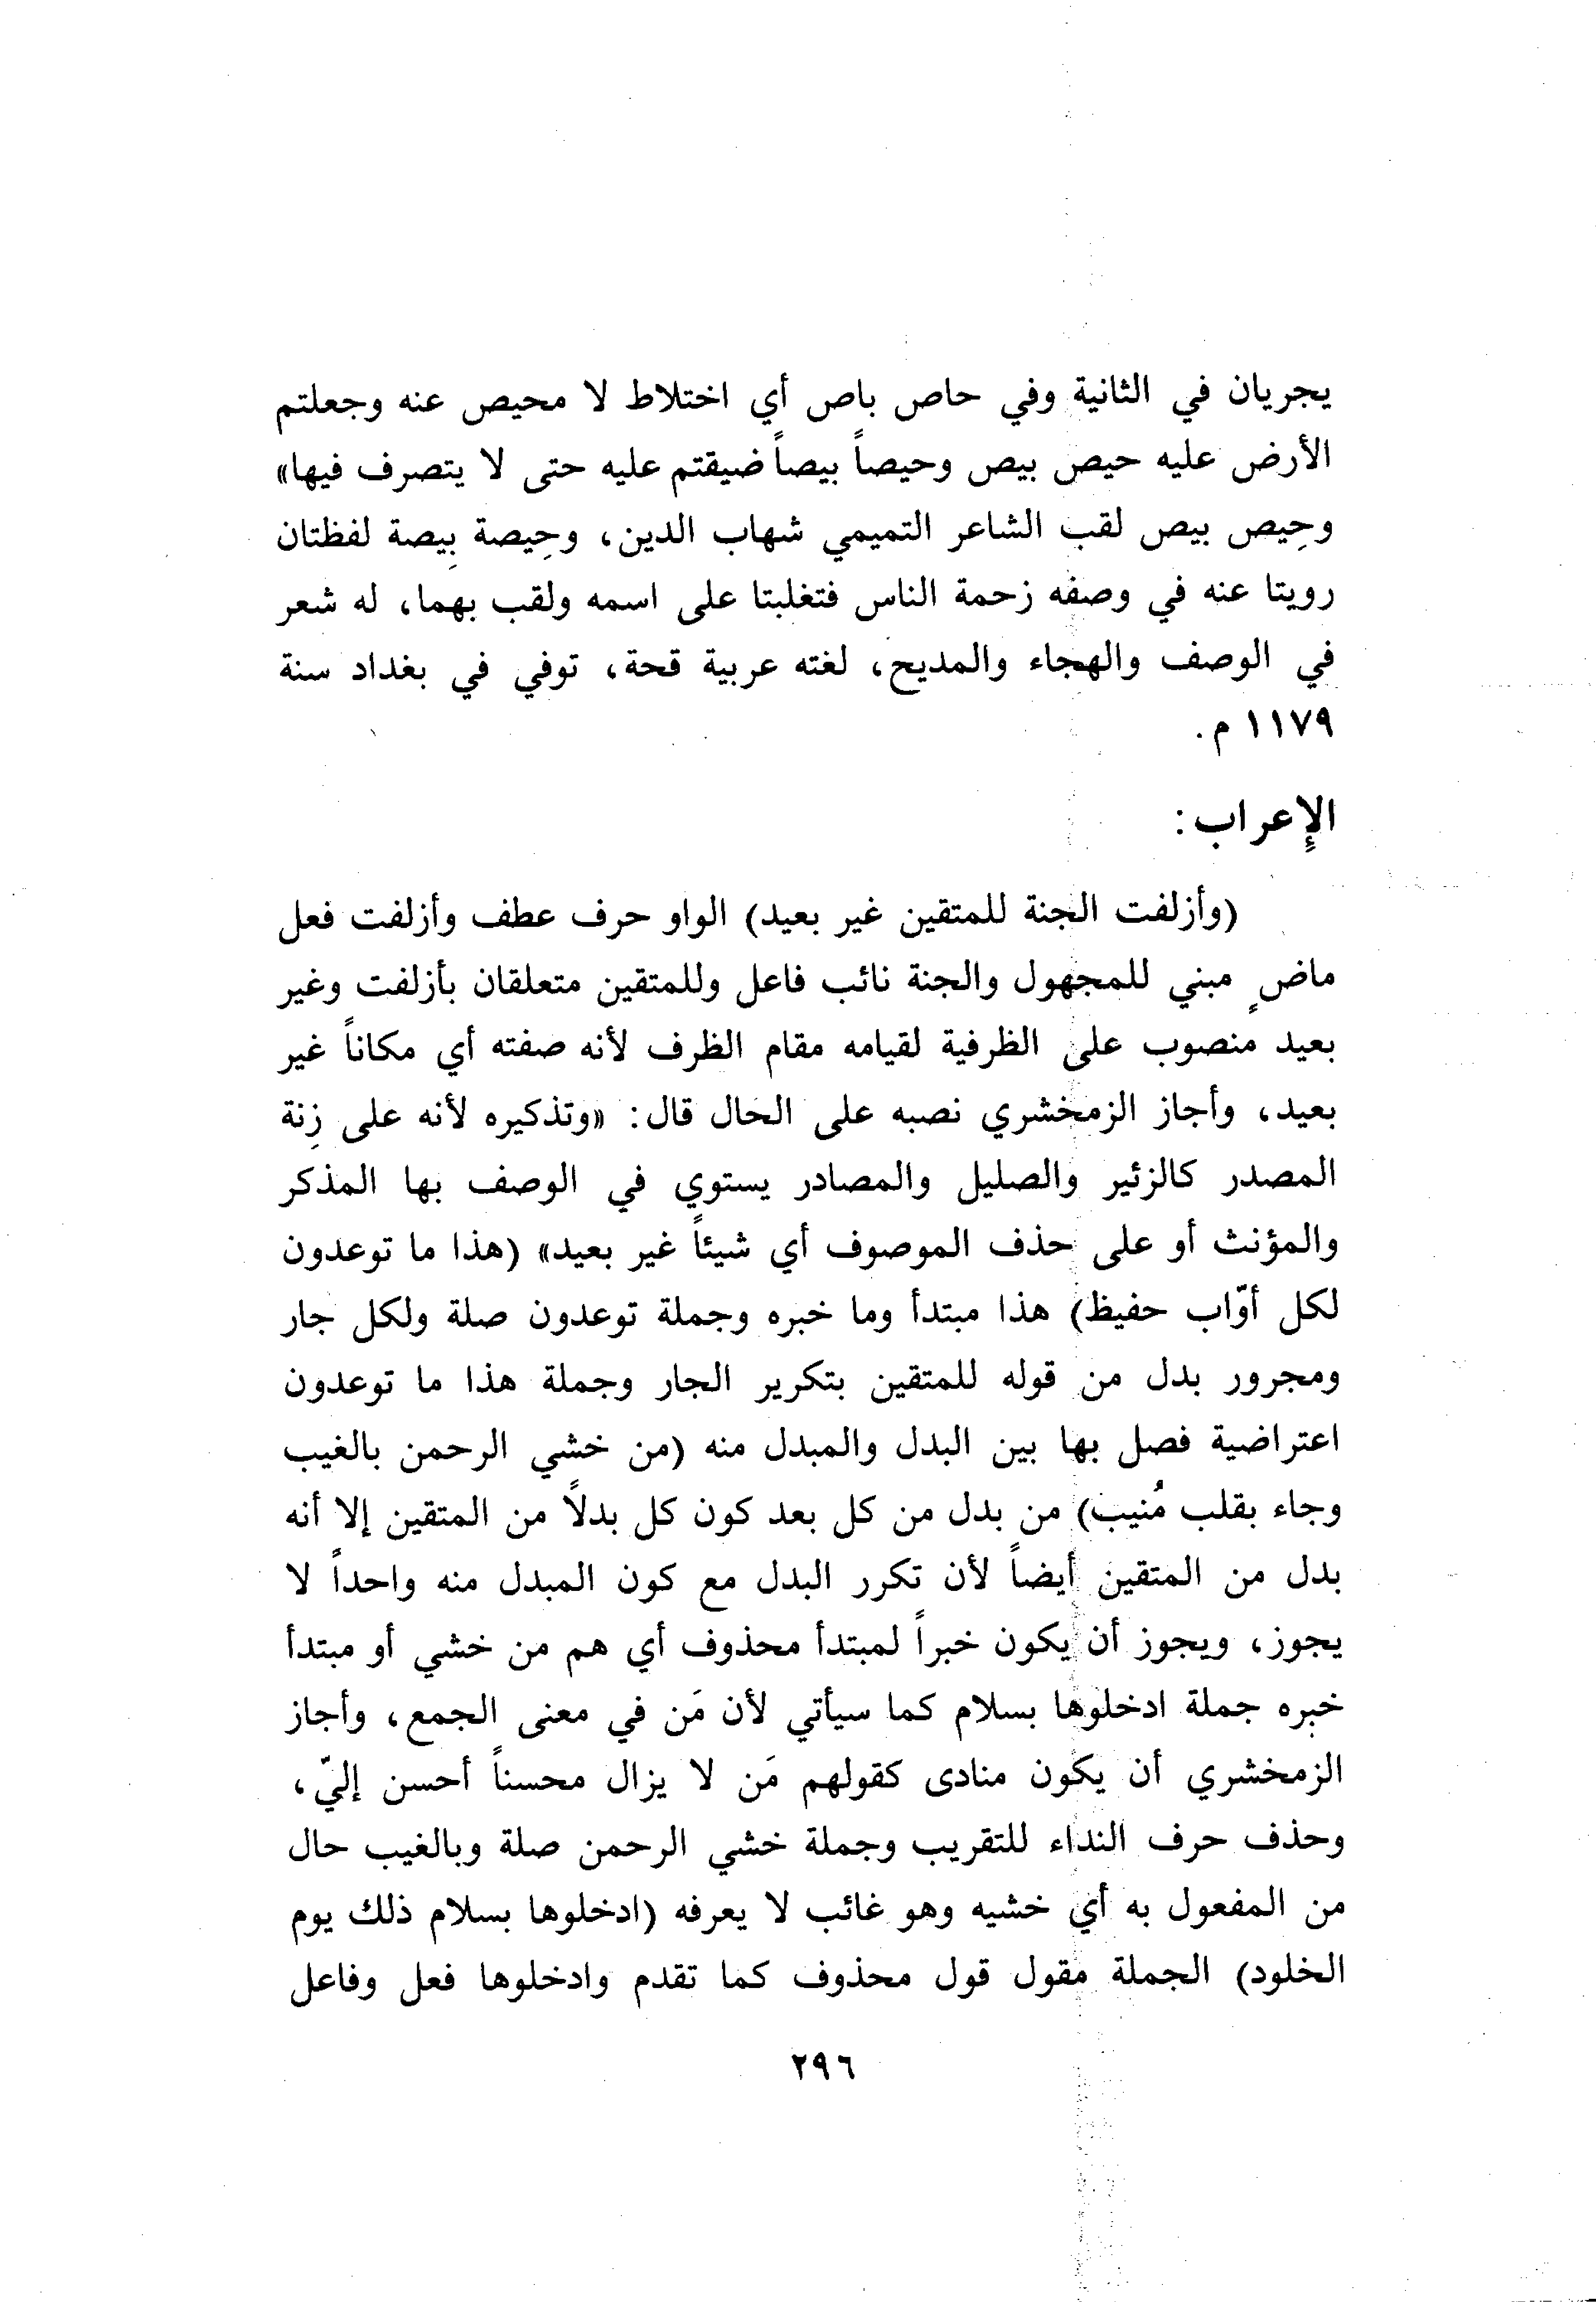 يجريان في الثانية وفي حاص باص أي اختلاط لا محيص عنه وجعلتم
الأرض عليه حيص بيص وحيصاً بيصاً ضيقتم عليه حتى لا يتصرف فيها»
وحِيص بيص لقب الشاعر التميمي شهاب الدين، وحِيصة بِيصة لفظتان
رويتا عنه في وصفه زحمة الناس فتغلبتا على اسمه ولقب بهما، له شعر
في الوصف والهجاء والمديح، لغته عربية قحة، توفي في بغداد سنة
١١٧٩ م.
الإعراب:
(وأزلفت الجنة للمتقين غير بعيد) الواو حرف عطف وأزلفت فعل
ماضٍ مبني للمجهول والجنة نائب فاعل وللمتقين متعلقان بأزلفت وغير
بعيد منصوب على الظرفية لقيامه مقام الظرف لأنه صفته أي مكاناً غير
بعيد، وأجاز الزمخشري نصبه على الحال قال: «وتذكيره لأنه على زِنة
المصدر كالزئير والصليل والمصادر يستوي في الوصف بها المذكر
والمؤنث أو على حذف الموصوف أي شيئاً غير بعيد» (هذا ما توعدون
لكل أوّاب حفيظ) هذا مبتدأ وما خبره وجملة توعدون صلة ولكل جار
ومجرور بدل من قوله للمتقين بتكرير الجار وجملة هذا ما توعدون
اعتراضية فصل بها بين البدل والمبدل منه (من خشي الرحمن بالغيب
وجاء بقلب مُنيب) من بدل من كل بعد كون كل بدلاً من المتقين إلا أنه
بدل من المتقين أيضاً لأن تكرر البدل مع كون المبدل منه واحداً لا
يجوز، ويجوز أن يكون خبراً لمبتدأ محذوف أي هم من خشي أو مبتدأ
خبره جملة ادخلوها بسلام كما سيأتي لأن مَن في معنى الجمع، وأجاز
الزمخشري أن يكون منادى كقولهم مَن لا يزال محسناً أحسن إليّ،
وحذف حرف النداء للتقريب وجملة خشي الرحمن صلة وبالغيب حال
من المفعول به أي خشيه وهو غائب لا يعرفه (ادخلوها بسلام ذلك يوم
الخلود) الجملة مقول قول محذوف كما تقدم وادخلوها فعل وفاعل
٢٩٦